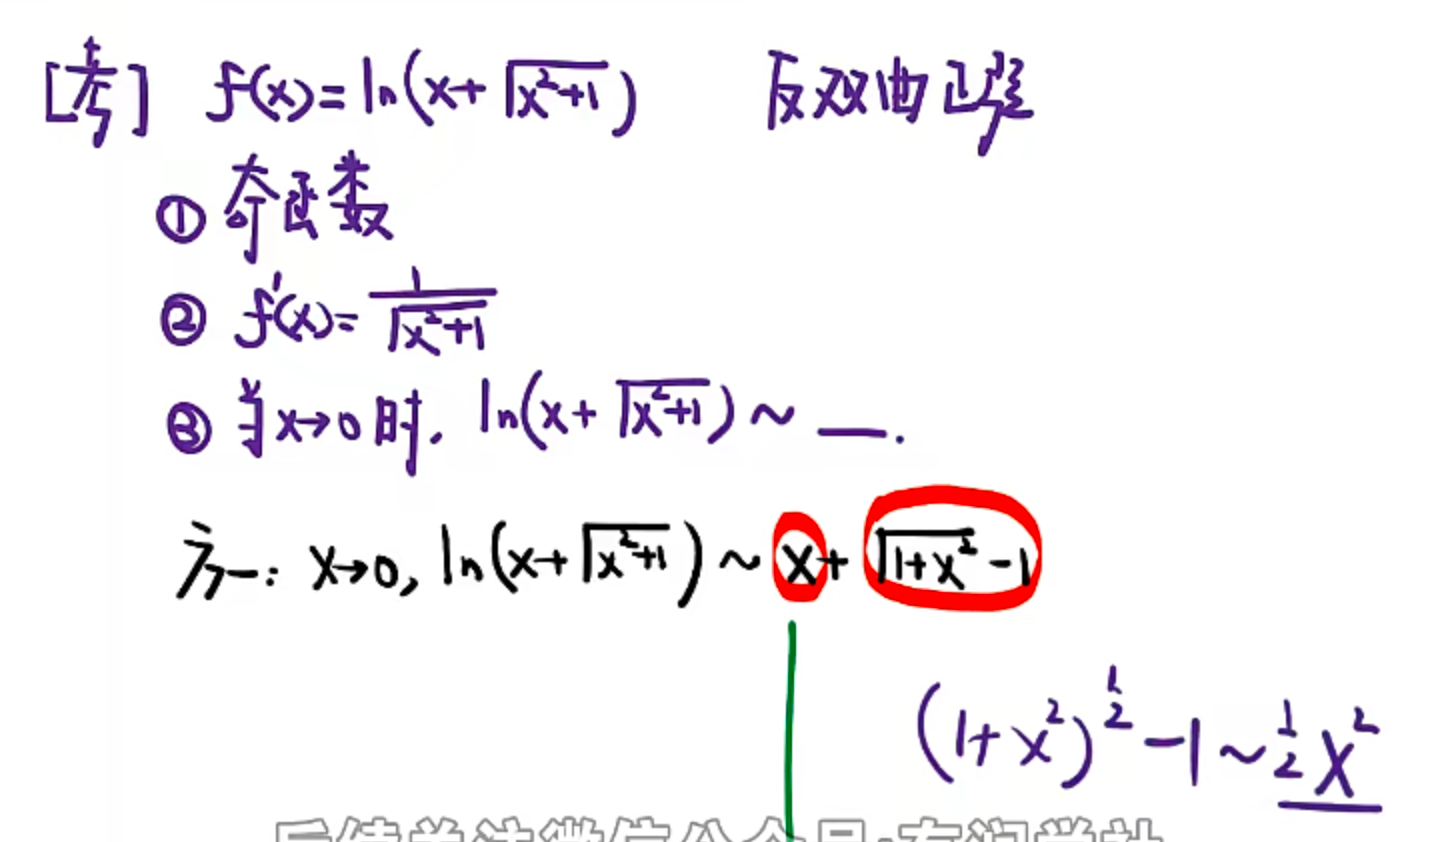 [考] f(x)=ln(x+√(x²+1)) 反双曲正弦
① 奇函数
② f'(x)=1/√(x²+1)
③ 当x→0时, ln(x+√(x²+1)) ~ __.
方一: x→0, ln(x+√(x²+1)) ~ x+√(1+x²)-1
(1+x²)^(1/2)-1~1/2 x²